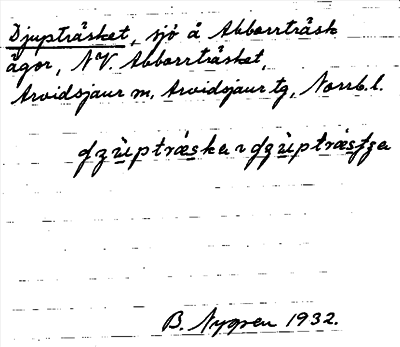 Djupträsket, sjö å Abborrträsk
ägor, NV. Abborrträsket,
Arvidsjaur sn, Arvidsjaur tg, Norrb. l.
B. Nygren 1932.